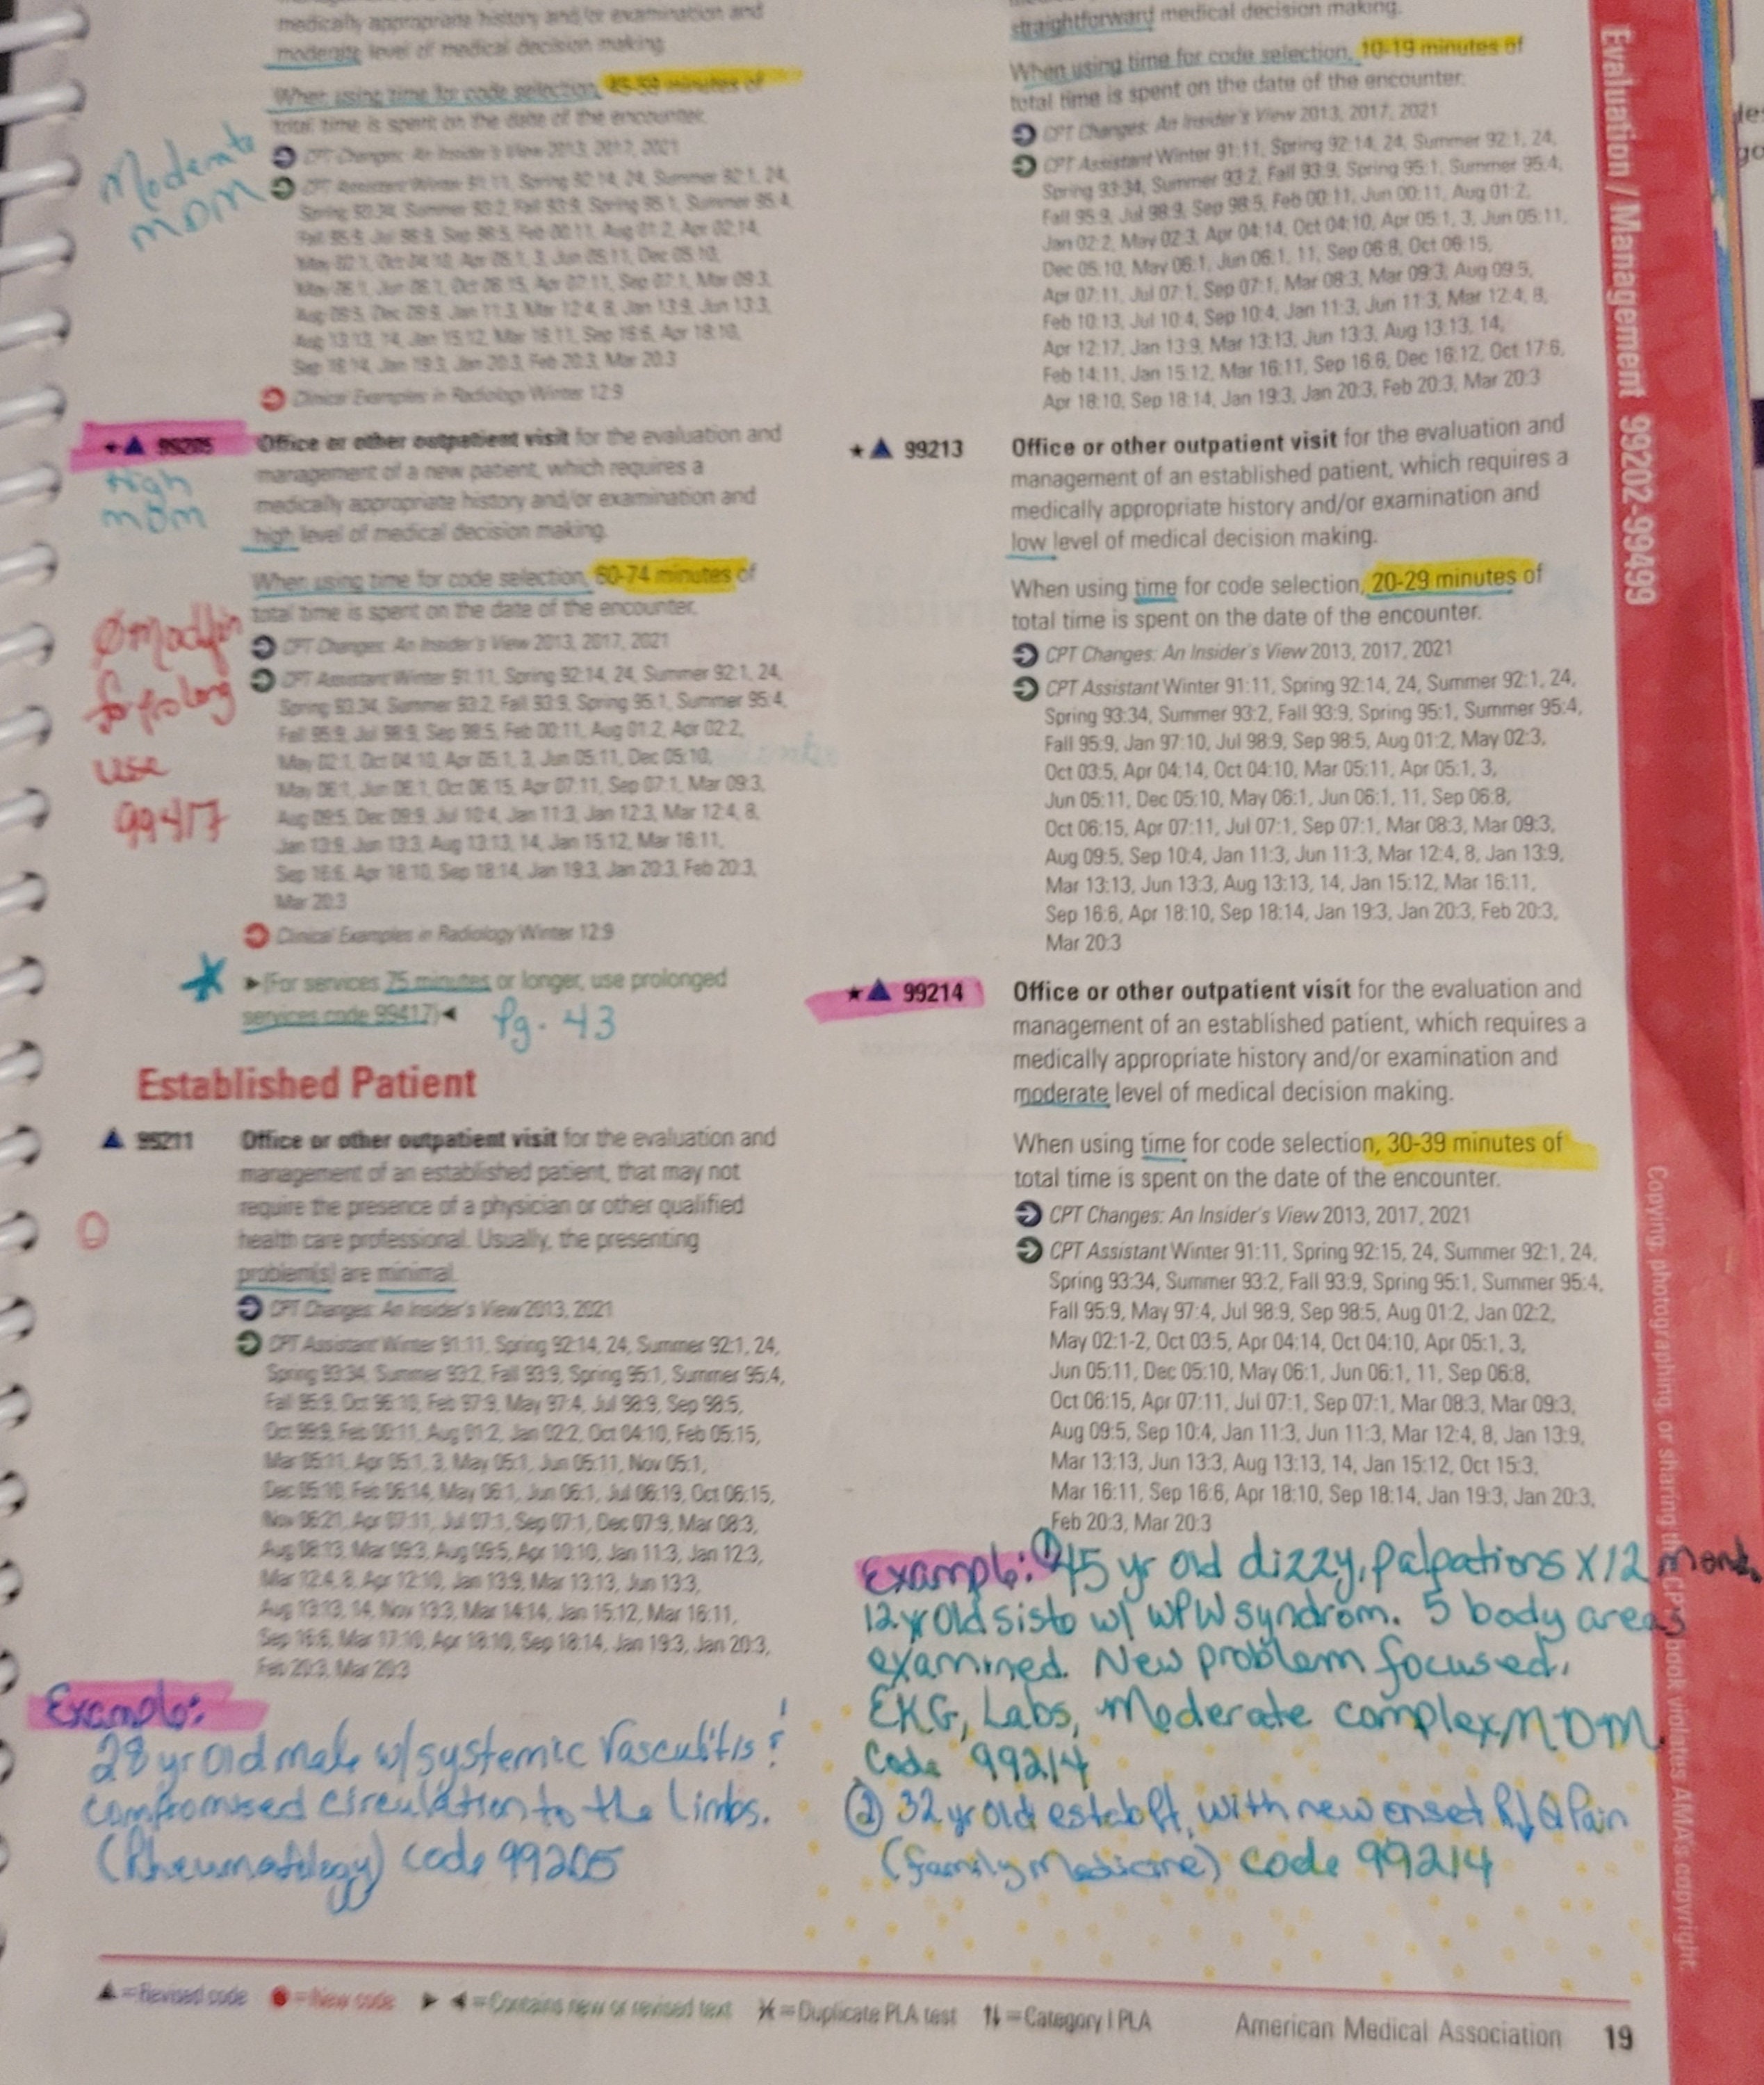 medically appropriate history and/or examination and
moderate level of medical decision making.
When using time for code selection, 45-59 minutes of
total time is spent on the date of the encounter.
Moderate
MDM
CPT Changes: An Insider's View 2013, 2017, 2021
CPT Assistant Winter 91:11, Spring 92:14, 24, Summer 92:1, 24,
Spring 93:34, Summer 93:2, Fall 93:9, Spring 95:1, Summer 95:4,
Fall 95:9, Jul 98:9, Sep 98:5, Feb 00:11, Aug 01:2, Apr 02:14,
May 02:1, Oct 04:10, Apr 05:1, 3, Jun 05:11, Dec 05:10,
May 06:1, Jun 06:1, Oct 06:15, Apr 07:11, Sep 07:1, Mar 09:3,
Aug 09:5, Dec 09:9, Jan 11:3, Mar 12:4, 8, Jan 13:9, Jun 13:3,
Aug 13:13, 14, Jan 15:12, Mar 16:11, Sep 16:6, Apr 18:10,
Sep 18:14, Jan 19:3, Jan 20:3, Feb 20:3, Mar 20:3
Clinical Examples in Radiology Winter 12:9
★▲ 99205 Office or other outpatient visit for the evaluation and
management of a new patient, which requires a
medically appropriate history and/or examination and
high level of medical decision making.
High
MDM
When using time for code selection, 60-74 minutes of
total time is spent on the date of the encounter.
for prolong
use
99417
CPT Changes: An Insider's View 2013, 2017, 2021
CPT Assistant Winter 91:11, Spring 92:14, 24, Summer 92:1, 24,
Spring 93:34, Summer 93:2, Fall 93:9, Spring 95:1, Summer 95:4,
Fall 95:9, Jul 98:9, Sep 98:5, Feb 00:11, Aug 01:2, Apr 02:2,
May 02:1, Oct 04:10, Apr 05:1, 3, Jun 05:11, Dec 05:10,
May 06:1, Jun 06:1, Oct 06:15, Apr 07:11, Sep 07:1, Mar 09:3,
Aug 09:5, Dec 09:9, Jul 10:4, Jan 11:3, Jan 12:3, Mar 12:4, 8,
Jan 13:9, Jun 13:3, Aug 13:13, 14, Jan 15:12, Mar 16:11,
Sep 16:6, Apr 18:10, Sep 18:14, Jan 19:3, Jan 20:3, Feb 20:3,
Mar 20:3
Clinical Examples in Radiology Winter 12:9
►(For services 75 minutes or longer, use prolonged
services code 99417)◄ Pg. 43
Established Patient
▲ 99211 Office or other outpatient visit for the evaluation and
management of an established patient, that may not
require the presence of a physician or other qualified
health care professional. Usually, the presenting
problem(s) are minimal.
CPT Changes: An Insider's View 2013, 2021
CPT Assistant Winter 91:11, Spring 92:14, 24, Summer 92:1, 24,
Spring 93:34, Summer 93:2, Fall 93:9, Spring 95:1, Summer 95:4,
Fall 95:9, Oct 96:10, Feb 97:9, May 97:4, Jul 98:9, Sep 98:5,
Oct 99:9, Feb 00:11, Aug 01:2, Jan 02:2, Oct 04:10, Feb 05:15,
Mar 05:11, Apr 05:1, 3, May 05:1, Jun 05:11, Nov 05:1,
Dec 05:10, Feb 06:14, May 06:1, Jun 06:1, Jul 06:19, Oct 06:15,
Nov 06:21, Apr 07:11, Jul 07:1, Sep 07:1, Dec 07:9, Mar 08:3,
Aug 08:13, Mar 09:3, Aug 09:5, Apr 10:10, Jan 11:3, Jan 12:3,
Mar 12:4, 8, Apr 12:10, Jan 13:9, Mar 13:13, Jun 13:3,
Aug 13:13, 14, Nov 13:3, Mar 14:14, Jan 15:12, Mar 16:11,
Sep 16:6, Mar 17:10, Apr 18:10, Sep 18:14, Jan 19:3, Jan 20:3,
Feb 20:3, Mar 20:3
Example:
28 yr old male w/ systemic Vasculitis &
compromised circulation to the limbs.
(Rheumatology) code 99205
straightforward medical decision making.
When using time for code selection, 10-19 minutes of
total time is spent on the date of the encounter.
CPT Changes: An Insider's View 2013, 2017, 2021
CPT Assistant Winter 91:11, Spring 92:14, 24, Summer 92:1, 24,
Spring 93:34, Summer 93:2, Fall 93:9, Spring 95:1, Summer 95:4,
Fall 95:9, Jul 98:9, Sep 98:5, Feb 00:11, Jun 00:11, Aug 01:2,
Jan 02:2, May 02:3, Apr 04:14, Oct 04:10, Apr 05:1, 3, Jun 05:11,
Dec 05:10, May 06:1, Jun 06:1, 11, Sep 06:8, Oct 06:15,
Apr 07:11, Jul 07:1, Sep 07:1, Mar 08:3, Mar 09:3, Aug 09:5,
Feb 10:13, Jul 10:4, Sep 10:4, Jan 11:3, Jun 11:3, Mar 12:4, 8,
Apr 12:17, Jan 13:9, Mar 13:13, Jun 13:3, Aug 13:13, 14,
Feb 14:11, Jan 15:12, Mar 16:11, Sep 16:6, Dec 16:12, Oct 17:6,
Apr 18:10, Sep 18:14, Jan 19:3, Jan 20:3, Feb 20:3, Mar 20:3
★▲ 99213 Office or other outpatient visit for the evaluation and
management of an established patient, which requires a
medically appropriate history and/or examination and
low level of medical decision making.
When using time for code selection, 20-29 minutes of
total time is spent on the date of the encounter.
CPT Changes: An Insider's View 2013, 2017, 2021
CPT Assistant Winter 91:11, Spring 92:14, 24, Summer 92:1, 24,
Spring 93:34, Summer 93:2, Fall 93:9, Spring 95:1, Summer 95:4,
Fall 95:9, Jan 97:10, Jul 98:9, Sep 98:5, Aug 01:2, May 02:3,
Oct 03:5, Apr 04:14, Oct 04:10, Mar 05:11, Apr 05:1, 3,
Jun 05:11, Dec 05:10, May 06:1, Jun 06:1, 11, Sep 06:8,
Oct 06:15, Apr 07:11, Jul 07:1, Sep 07:1, Mar 08:3, Mar 09:3,
Aug 09:5, Sep 10:4, Jan 11:3, Jun 11:3, Mar 12:4, 8, Jan 13:9,
Mar 13:13, Jun 13:3, Aug 13:13, 14, Jan 15:12, Mar 16:11,
Sep 16:6, Apr 18:10, Sep 18:14, Jan 19:3, Jan 20:3, Feb 20:3,
Mar 20:3
★▲ 99214 Office or other outpatient visit for the evaluation and
management of an established patient, which requires a
medically appropriate history and/or examination and
moderate level of medical decision making.
When using time for code selection, 30-39 minutes of
total time is spent on the date of the encounter.
CPT Changes: An Insider's View 2013, 2017, 2021
CPT Assistant Winter 91:11, Spring 92:15, 24, Summer 92:1, 24,
Spring 93:34, Summer 93:2, Fall 93:9, Spring 95:1, Summer 95:4,
Fall 95:9, May 97:4, Jul 98:9, Sep 98:5, Aug 01:2, Jan 02:2,
May 02:1-2, Oct 03:5, Apr 04:14, Oct 04:10, Apr 05:1, 3,
Jun 05:11, Dec 05:10, May 06:1, Jun 06:1, 11, Sep 06:8,
Oct 06:15, Apr 07:11, Jul 07:1, Sep 07:1, Mar 08:3, Mar 09:3,
Aug 09:5, Sep 10:4, Jan 11:3, Jun 11:3, Mar 12:4, 8, Jan 13:9,
Mar 13:13, Jun 13:3, Aug 13:13, 14, Jan 15:12, Oct 15:3,
Mar 16:11, Sep 16:6, Apr 18:10, Sep 18:14, Jan 19:3, Jan 20:3,
Feb 20:3, Mar 20:3
Example: ① 45 yr old dizzy, palpations X 12 month.
12 yr old sista w/ WPW syndrom. 5 body areas
examined. New problem focused.
EKG, Labs, Moderate complex MDM
Code 99214
② 32 yr old estab pt. with new onset Pain
(family Medicine) code 99214
▲=Revised code ●=New code ► ◄=Contains new or revised text =Duplicate PLA test ↑↓=Category I PLA
American Medical Association 19
Evaluation / Management 99202-99499
Copying, photographing, or sharing this CPT® book violates AMA's copyright.